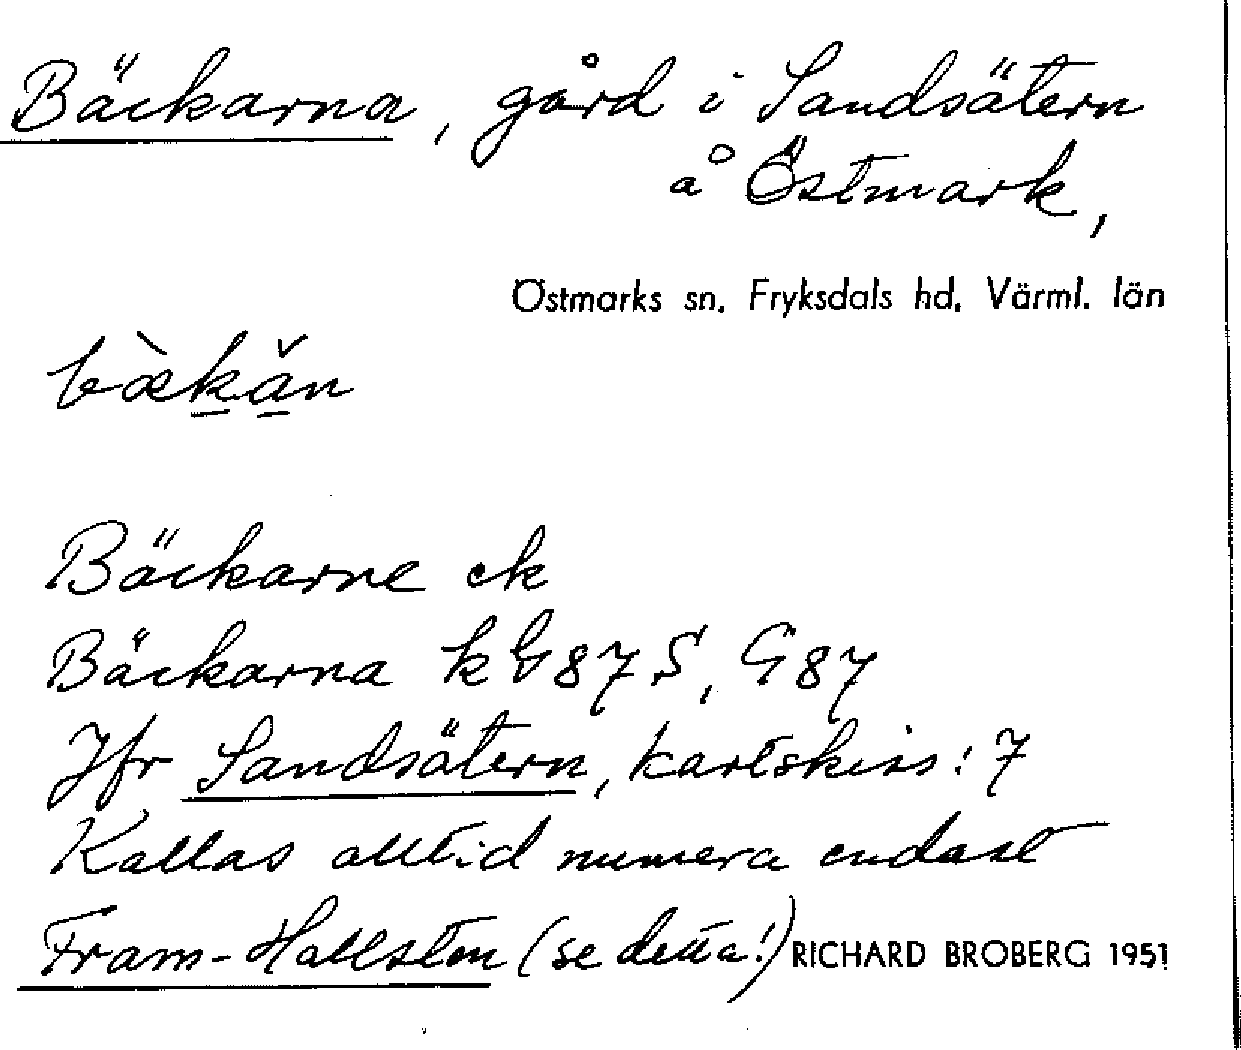 Bäckarna, gård i Sandsätern
å Östmark,
Östmarks sn. Fryksdals hd. Värml. län
bæ̀kăn
Bäckarne ek
Bäckarna k G87 S, G87
Jfr Sandsätern, kartskiss: 7
Kallas alltid numera endast
Fram-Hallsten (se detta!) RICHARD BROBERG 1951